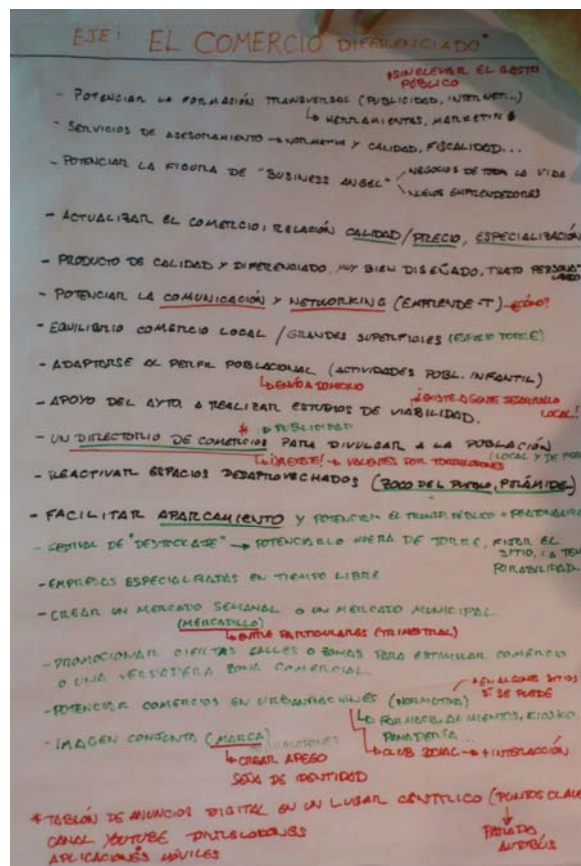 EJE: EL COMERCIO DIFERENCIADO*
*SIN ELEVAR EL GASTO
PÚBLICO
- POTENCIAR LA FORMACIÓN TRANSVERSAL (PUBLICIDAD, INTERNET...)
↳ HERRAMIENTAS, MARKETING
- SERVICIOS DE ASESORAMIENTO → NORMATIVA Y CALIDAD, FISCALIDAD...
- POTENCIAR LA FIGURA DE "BUSINESS ANGEL"
NEGOCIOS DE TODA LA VIDA
NUEVOS EMPRENDEDORES
- ACTUALIZAR EL COMERCIO: RELACIÓN CALIDAD/PRECIO, ESPECIALIZACIÓN
- PRODUCTO DE CALIDAD Y DIFERENCIADO, MUY BIEN DISEÑADO, TRATO PERSONA-
LIZADO
- POTENCIAR LA COMUNICACIÓN Y NETWORKING (EMPRENDE-T) → ¿CÓMO?
- EQUILIBRIO COMERCIO LOCAL / GRANDES SUPERFICIES (ESPACIO TORRE)
- ADAPTARSE AL PERFIL POBLACIONAL (ACTIVIDADES POBL. INFANTIL)
↳ ENVÍO A DOMICILIO
¡EXISTE AGENTE DESARROLLO
LOCAL!
- APOYO DEL AYTO. A REALIZAR ESTUDIOS DE VIABILIDAD.
* PUBLICIDAD
- UN DIRECTORIO DE COMERCIOS PARA DIVULGAR A LA POBLACIÓN
(LOCAL Y DE
↳ ¡YA EXISTE! →
- REACTIVAR ESPACIOS DESAPROVECHADOS (ZOCO DEL PUEBLO, PIRÁMIDE...)
- FACILITAR APARCAMIENTO Y POTENCIAR EL TRANSP. PÚBLICO +
- FESTIVAL DE "DESTOCKAJE" → POTENCIARLO FUERA DE TORRE, FIJAR EL
SITIO, LA TEM-
PORALIDAD.
- EMPRESAS ESPECIALIZADAS EN TIEMPO LIBRE
- CREAR UN MERCADO SEMANAL O UN MERCADO MUNICIPAL
(MERCADILLO)
↳ ENTRE PARTICULARES (TRIMESTRAL)
- PROMOCIONAR CIERTAS CALLES O ZONAS PARA ESTIMULAR COMERCIO
O UNA VERDADERA ZONA COMERCIAL
EN ALGUNOS SITIOS
SÍ SE PUEDE
- POTENCIAR COMERCIOS EN URBANIZACIONES (NORMATIVA)
↳ FARMACIA, ALIMENTOS, KIOSKO
PANADERÍA...
- IMAGEN CONJUNTA (MARCA)
↳ CLUB SOCIAL → + INTERACCIÓN
↳ CREAR APEGO
SEÑA DE IDENTIDAD
* TABLÓN DE ANUNCIOS DIGITAL EN UN LUGAR CÉNTRICO (PUNTOS CLAVE
CANAL YOUTUBE TORRELODONES
APLICACIONES MÓVILES
PARADA
AUTOBÚS